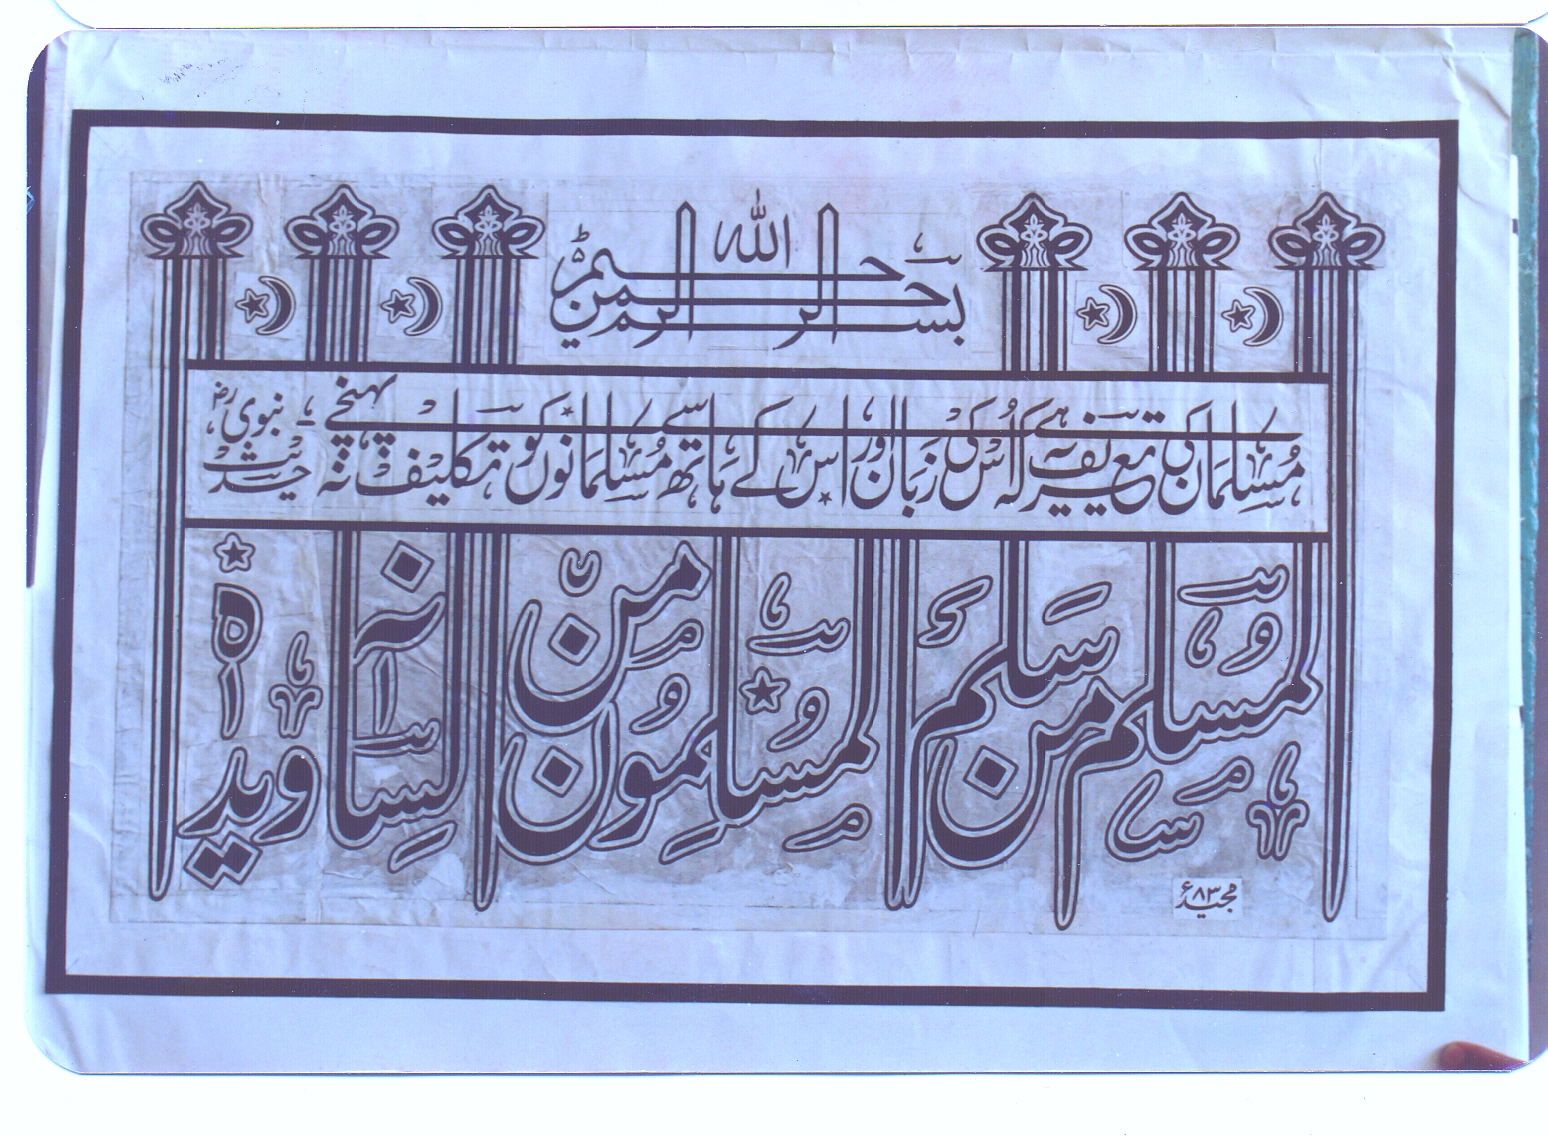 بسم الله الرحمن الرحيم
مسلمان کی تعریف یہ ہے کہ اُس کی زبان اور اس کے ہاتھ سے مسلمانوں کو تکلیف نہ پہنچے ۔ حدیث نبوی
المسلم من سلم المسلمون من لسانه ويده
مجید ۸۳ء